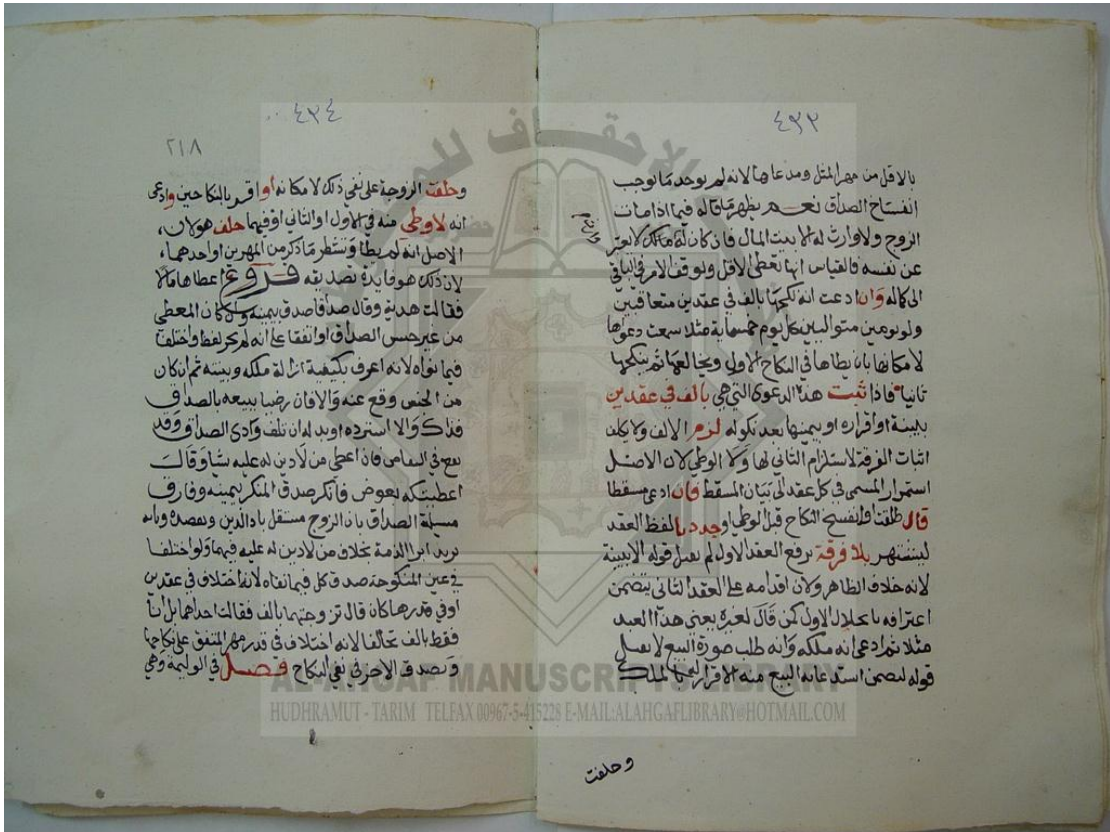 ٤٣٣
بالاقل من مهر المثل ومدعاها لانه لم يوجد ما يوجب
انفساخ الصداق نعم يظهر ما قاله فيما اذا مات
الزوج ولا وارث له الا بيت المال فان كان له مالك لا يعبر
عن نفسه فالقياس انها تعطى الاقل ويوقف الامر في الباقي
الى كماله وان ادعت انه نكحها بالف في عقدين متعاقبين
ولو يومين متواليين كل يوم خمسماية مثلا سمعت دعوها
لامكانها بان يطاها في النكاح الاول ويخالعها ثم ينكحها
ثانيا فاذا ثبت هذه الدعوى التي هي بالف في عقدين
ببينة او اقراره او يمينها بعد نكوله لزم الالف ولا يكلف
اثبات الفرقة لاستلزام الثاني لها ولا الوطي لان الاصل
استمرار المسمى في كل عقد الى بيان المسقط فان ادعى مسقطا
قال طلقت او انفسخ النكاح قبل الوطي او جددنا لفظ العقد
ليشتهر بلا فرقة برفع العقد الاول لم يقبل قوله الا ببينة
لانه خلاف الظاهر ولان اقدامه على العقد الثاني يتضمن
اعترافه بانحلال الاول كمن قال لغيره بعني هذا العبد
مثلا ثم ادعى انه ملكه وانه طلب صورة البيع لا يقبل
قوله لتضمن استدعائه البيع منه الاقرار له بالملك
وحلفت
٤٣٤
٢١٨
وحلفت الزوجة على نفي ذلك لامكانه او اقر بالنكاحين وادعى
انه لا وطي منه في الاول او الثاني او فيهما حلف هو لان
الاصل انه لم يطا وتشطر ما ذكر من المهرين او احدهما
لان ذلك هو فايدة تصديقه فروع اعطاها مالا
فقالت هدية وقال صداقا صدق بيمينه وان كان المعطى
من غير جنس الصداق او اتفقا على انه لم يجر لفظ واختلفا
فيما نواه لانه اعرف بكيفية ازالة ملكه وبينته ثم ان كان
من الجنس وقع عنه والا فان رضيا ببيعه بالصداق
فذاك والا استرده او بدله ان تلف وادى الصداق وقد
يقع في التقاص فان اعطى من لا دين له عليه شيا وقال
اعطيتكه بعوض فانكر صدق المنكر بيمينه وفارق
مسئلة الصداق بان الزوج مستقل باداء الدين وبقصده وبانه
يريد ابراء الذمة بخلاف من لا دين له عليه فيهما ولو اختلفا
في عين المنكوحة صدق كل فيما نفاه لانه اختلاف في عقدين
او في قدر مهرها كان قال تزوجتهما بالف فقالت احداهما بل انا
فقط بالف تحالفا لانه اختلاف في قدر مهر المتفق على نكاحها
وتصدق الاخرى في نفي النكاح فصل في الوليمة وهي
AL-AHGAF MANUSCRIPTS LIBRARY
HUDHRAMUT - TARIM TELFAX 00967-5-415228 E-MAIL:ALAHGAFLIBRARY@HOTMAIL.COM